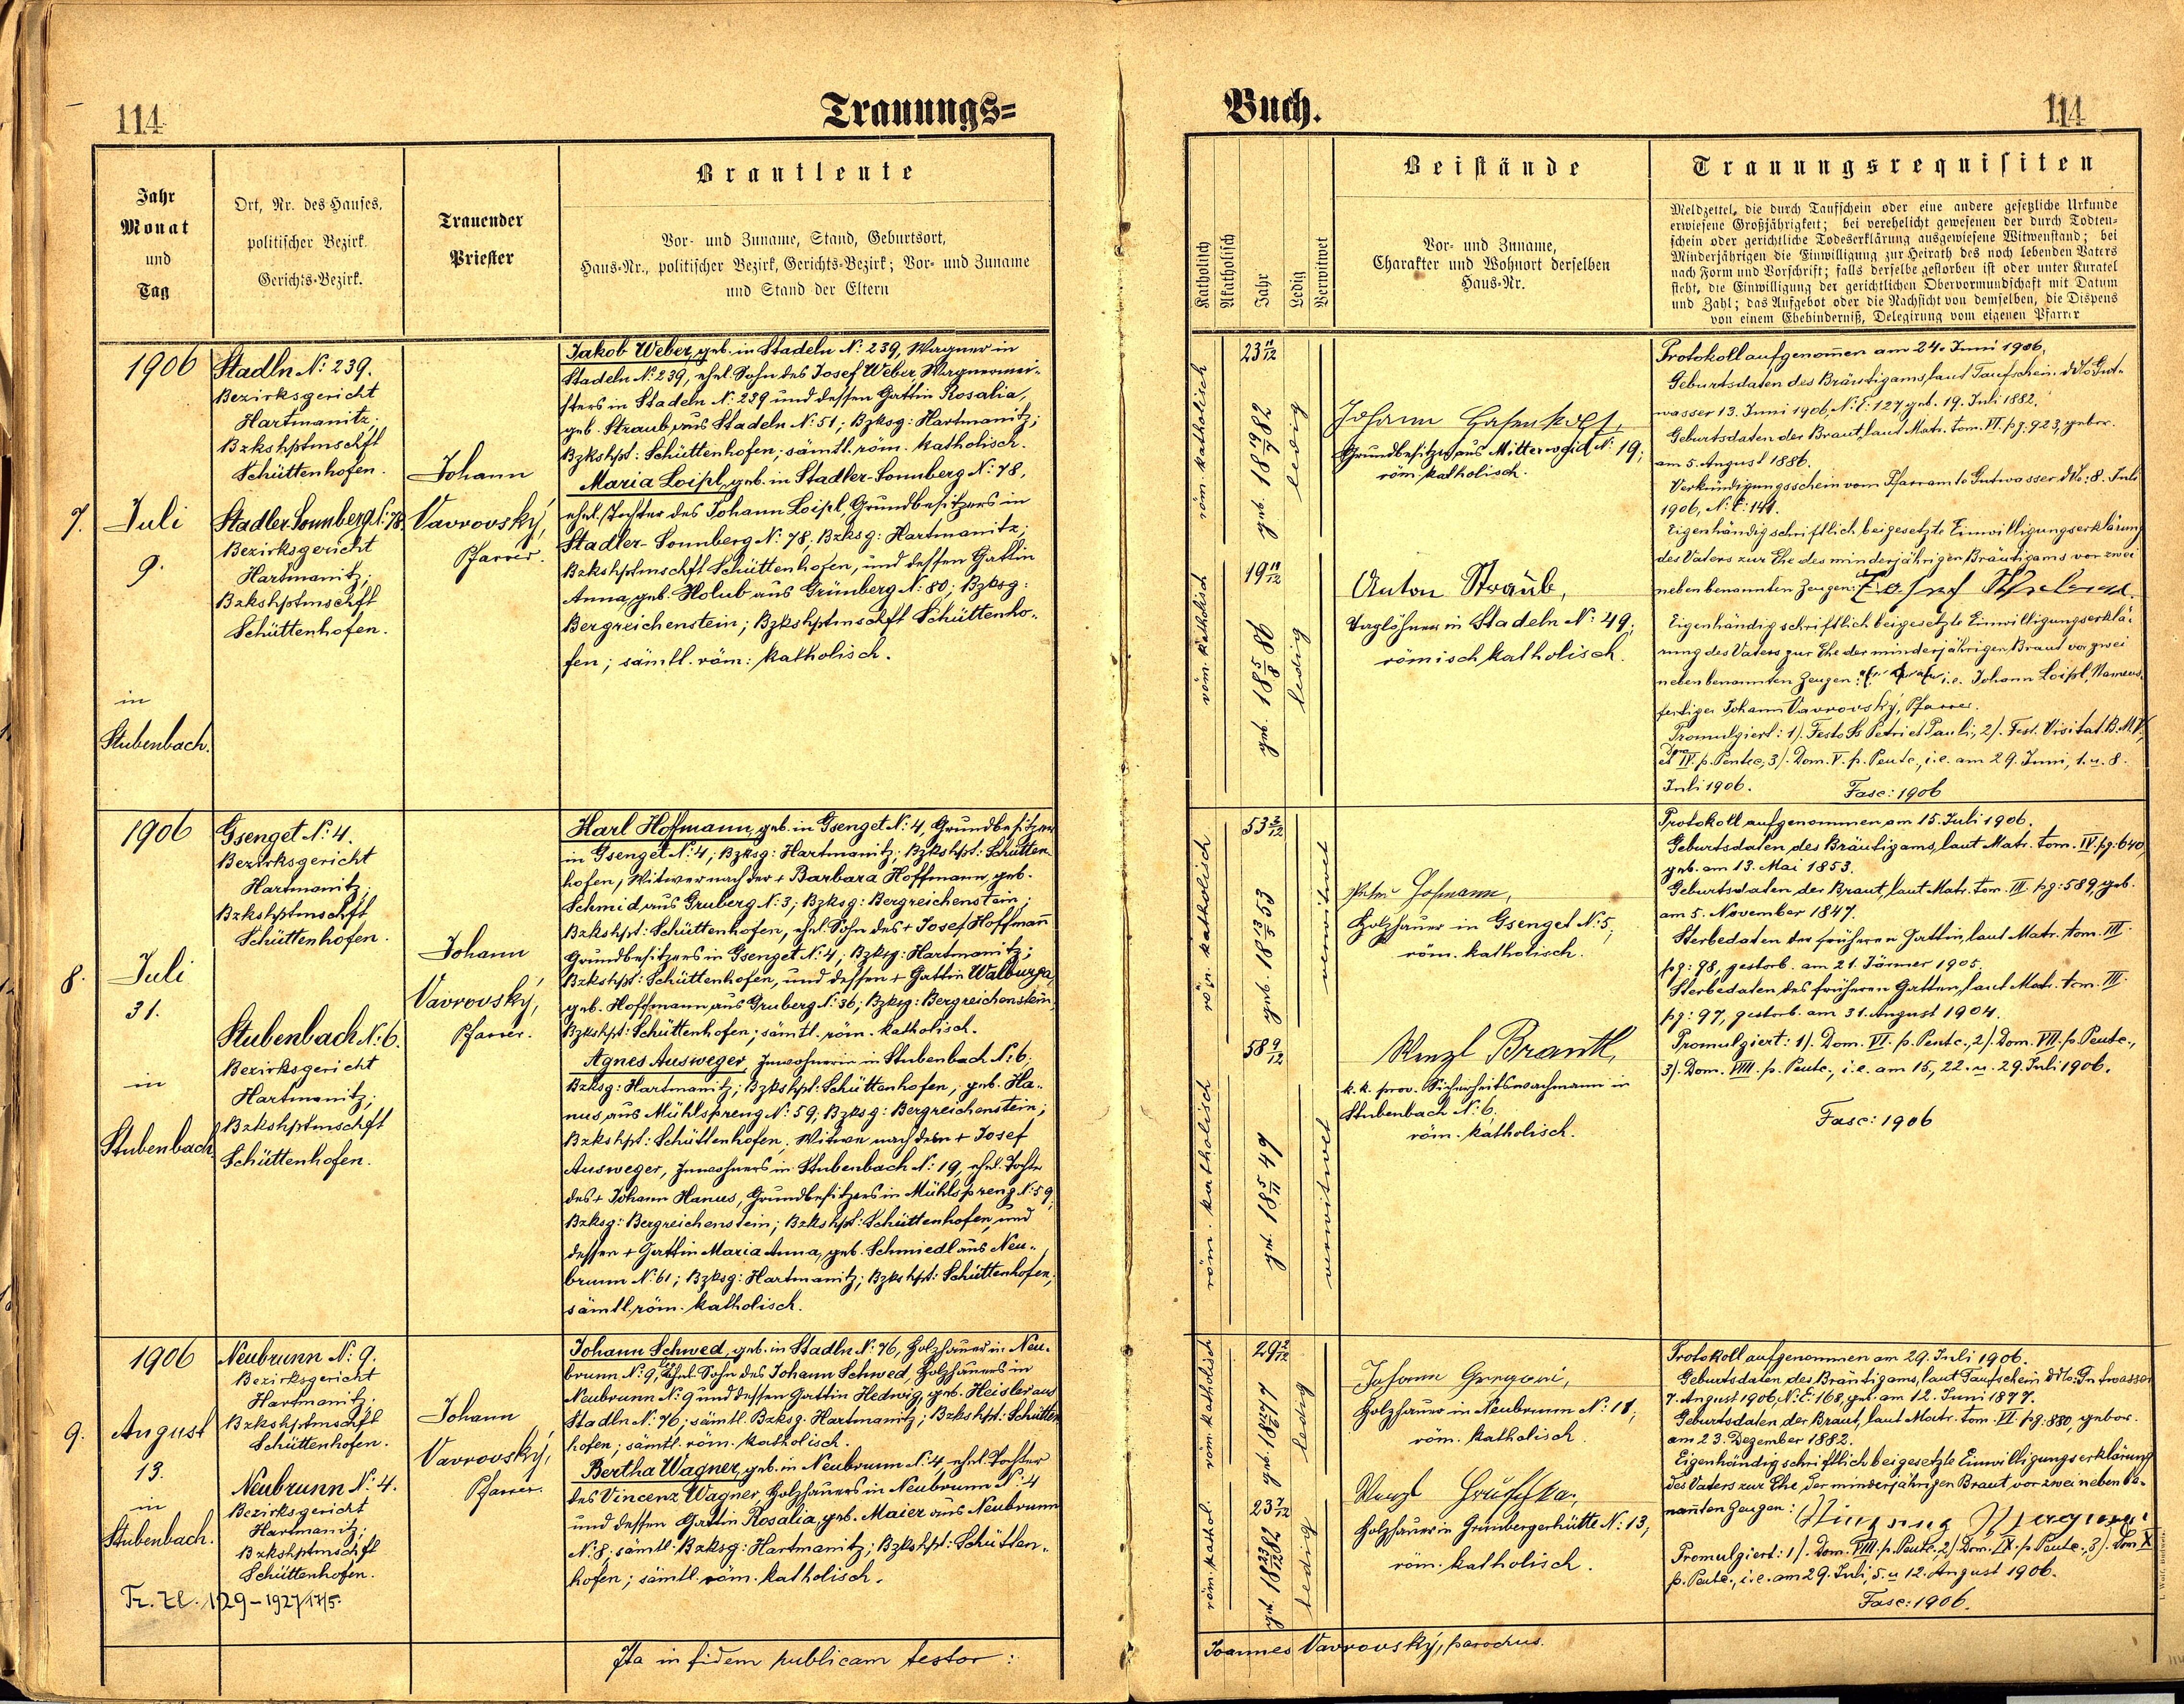 114
Trauungs=
Jahr
Monat
und
Tag
Ort, Nr. des Hauses,
politischer Bezirk.
Gerichts-Bezirk.
Trauender
Priester
Brautleute
Vor- und Zuname, Stand, Geburtsort,
Haus-Nr., politischer Bezirk, Gerichts-Bezirk; Vor- und Zuname
und Stand der Eltern
7.
1906
Juli
9.
in
Stubenbach.
Stadln N: 239.
Bezirksgericht
Hartmanitz;
Bzkshptmschft
Schüttenhofen.
Stadler-Sonnberg N: 78
Bezirksgericht
Hartmanitz;
Bzkshptmschft
Schüttenhofen.
Johann
Vavrovský,
Pfarrer.
Jakob Weber, geb. in Stadeln N: 239, Wagner in
Stadeln N: 239, ehel. Sohn des Josef Weber, Wagnermei-
sters in Stadeln N: 239 und dessen Gattin Rosalia,
geb. Straub aus Stadeln N: 51; Bzksg: Hartmanitz;
Bzkshpt: Schüttenhofen; sämtl. röm. katholisch.
Maria Loipl, geb. in Stadler-Sonnberg N: 78,
ehel. Tochter des Johann Loipl, Grundbesitzers in
Stadler-Sonnberg N: 78; Bzksg: Hartmanitz;
Bzkshptmschft Schüttenhofen, und dessen Gattin
Anna, geb. Holub aus Grünberg N: 80; Bzksg:
Bergreichenstein; Bzkshptmschft Schüttenho-
fen; sämtl. röm: katholisch.
8.
1906
Juli
31.
in
Stubenbach.
Gsenget N: 4.
Bezirksgericht
Hartmanitz;
Bzkshptmschft
Schüttenhofen.
Stubenbach N: 6.
Bezirksgericht
Hartmanitz;
Bzkshptmschft
Schüttenhofen.
Johann
Vavrovský,
Pfarrer.
Karl Hoffmann, geb. in Gsenget N: 4, Grundbesitzer
in Gsenget N: 4; Bzksg: Hartmanitz; Bzkshpt: Schütten
hofen, Witwer nach der + Barbara Hoffmann, geb.
Schmid aus Gruberg N: 3; Bzksg: Bergreichenstein;
Bzkshpt: Schüttenhofen, ehel. Sohn des + Josef Hoffmann
Grundbesitzers in Gsenget N: 4; Bzksg: Hartmanitz;
Bzkshpt: Schüttenhofen, und dessen + Gattin Walburga,
geb. Hoffmann aus Gruberg N: 36; Bzksg: Bergreichenstein,
Bzkshpt: Schüttenhofen; sämtl. röm. katholisch.
Agnes Ausweger, Inwohnerin in Stubenbach N: 6.
Bzksg: Hartmanitz; Bzkshpt: Schüttenhofen; geb. Ha-
nus, aus Mühlspreng N: 59; Bzksg: Bergreichenstein;
Bzkshpt: Schüttenhofen, Witwe nach dem + Josef
Ausweger, Inwohners in Stubenbach N: 19, ehel. Tochter
des + Johann Hanus, Grundbesitzers in Mühlspreng N: 59,
Bzksg: Bergreichenstein; Bzkshpt: Schüttenhofen, und
dessen + Gattin Maria Anna, geb. Schmiedl aus Neu-
brunn N: 61; Bzksg: Hartmanitz; Bzkshpt: Schüttenhofen;
sämtl. röm. katholisch.
9.
1906
August
13.
in
Stubenbach.
Tr. Zl. 129-1927/17/5.
Neubrunn N: 9.
Bezirksgericht
Hartmanitz;
Bzkshptmschft
Schüttenhofen.
Neubrunn N: 4.
Bezirksgericht
Hartmanitz;
Bzkshptmschft
Schüttenhofen.
Johann
Vavrovský,
Pfarrer.
Johann Schwed, geb. in Stadln N: 76, Holzhauer in Neu-
brunn N: 9, ehel. Sohn des Johann Schwed, Holzhauers in
Neubrunn N: 9 und dessen Gattin Hedwig, geb. Heisler aus
Stadln N: 76; sämtl. Bzksg. Hartmanitz; Bzkshpt: Schütten
hofen; sämtl. röm. katholisch.
Bertha Wagner, geb. in Neubrunn N: 4, ehel. Tochter
des Vincenz Wagner, Holzhauers in Neubrunn N: 4
und dessen Gattin Rosalia, geb. Maier aus Neubrunn
N: 8, sämtl. Bzksg: Hartmanitz; Bzkshpt: Schütten-
hofen; sämtl. röm. katholisch.
Ita in fidem publicam testor:
Buch.
114
Katholisch
Akatholisch
Jahr
Ledig
Verwitwet
Beistände
Vor- und Zuname,
Charakter und Wohnort derselben
Haus-Nr.
Trauungsrequisiten
Meldzettel, die durch Taufschein oder eine andere gesetzliche Urkunde
erwiesene Großjährigkeit; bei verehelicht gewesenen der durch Todten-
schein oder gerichtliche Todeserklärung ausgewiesene Witwenstand; bei
Minderjährigen die Einwilligung zur Heirath des noch lebenden Vaters
nach Form und Vorschrift; falls derselbe gestorben ist oder unter Kuratel
steht, die Einwilligung der gerichtlichen Obervormundschaft mit Datum
und Zahl; das Aufgebot oder die Nachsicht von demselben, die Dispens
von einem Ehehinderniß, Delegirung vom eigenen Pfarrer
röm. katholisch
23 11/12
geb. 18 19/7 82
ledig
röm. katholisch
19 11/12
geb. 18 5/8 86
ledig
Johann Hasenkopf,
Grundbesitzer aus Mitterwaid N: 19;
röm. katholisch.
Anton Straub,
Taglöhner in Stadeln N: 49;
römisch katholisch.
Protokoll aufgenommen am 24. Juni 1906.
Geburtsdaten des Bräutigams, laut Taufschein ddto Gut-
wasser 13. Juni 1906, N. E: 127, geb. 19. Juli 1882.
Geburtsdaten der Braut, laut Matr. tom. VI. pg: 923, gebor.
am 5. August 1886.
Verkündigungsschein vom Pfarramte Gutwasser ddto: 8. Juli
1906, N: E: 141.
Eigenhändig schriftlich beigesetzte Einwilligungserklärung
des Vaters zur Ehe des minderjährigen Bräutigams vor zwei
neben benannten Zeugen: Josef
Eigenhändig schriftlich beigesetzte Einwilligungserklä-
rung des Vaters zur Ehe der minderjährigen Braut vor zwei
neben benannten Zeugen: i.e. Johann Loipl, Namens-
fertiger Johann Vavrovský, Pfarrer.
Promulgiert: 1). Festo Ss Petri et Pauli, 2). Fest. Visitat. B.M.V.,
et Dom IV. p. Pentec, 3). Dom. V. p. Pentc., i.e. am 29. Juni, 1. u. 8.
Juli 1906.
Fasc: 1906
röm. katholisch
53 2/12
geb. 18 13/5 53
verwitwet
röm. katholisch
58 9/12
geb. 18 5/11 47
verwitwet
Hofmann,
Holzhauer in Gsenget N: 5;
röm. katholisch.
Wenzl Brantl,
k. k. prov. Sicherheitswachmann in
Stubenbach N: 6.
röm. katholisch.
Protokoll aufgenommen am 15. Juli 1906.
Geburtsdaten des Bräutigams, laut Matr. tom. IV. pg. 640,
geb. am 13. Mai 1853.
Geburtsdaten der Braut, laut Matr. tom. III pg: 589 geb.
am 5. November 1847.
Sterbedaten der früheren Gattin, laut Matr. tom. III.
pg: 98, gestorb. am 21. Jänner 1905.
Sterbedaten des früheren Gatten, laut Matr. tom. III.
pg: 97, gestorb. am 31. August 1904.
Promulgiert: 1). Dom. VI. p. Pentc., 2). Dom. VII. p. Pentc.,
3). Dom. VIII. p. Pentc., i.e. am 15., 22. u. 29. Juli 1906.
Fasc: 1906
röm. katholisch
29 2/12
geb. 18 12/6 77
ledig
röm. kathol.
23 7/12
geb. 18 23/12 82
ledig
Johann Gregori,
Holzhauer in Neubrunn N: 18;
röm. katholisch.
Wenzl Hruschka,
Holzhauer in Grünbergerhütte N: 13;
röm. katholisch.
Protokoll aufgenommen am 29. Juli 1906.
Geburtsdaten des Bräutigams, laut Taufschein ddto. Gutwasser
7. August 1906, N: E: 168, geb. am 12. Juni 1877.
Geburtsdaten der Braut, laut Matr. tom. VI. pg: 880, gebor.
am 23. Dezember 1882.
Eigenhändig schriftlich beigesetzte Einwilligungserklärung
des Vaters zur Ehe der minderjährigen Braut vor zwei neben be-
nannten Zeugen: Wagner
Promulgiert: 1). Dom. VIII. p. Pentc., 2). Dom. IX. p. Pentc., 3). Dom. X
p. Pentc., i.e. am 29. Juli, 5. u 12. August 1906.
Fasc: 1906.
Joannes Vavrovský, parochus.